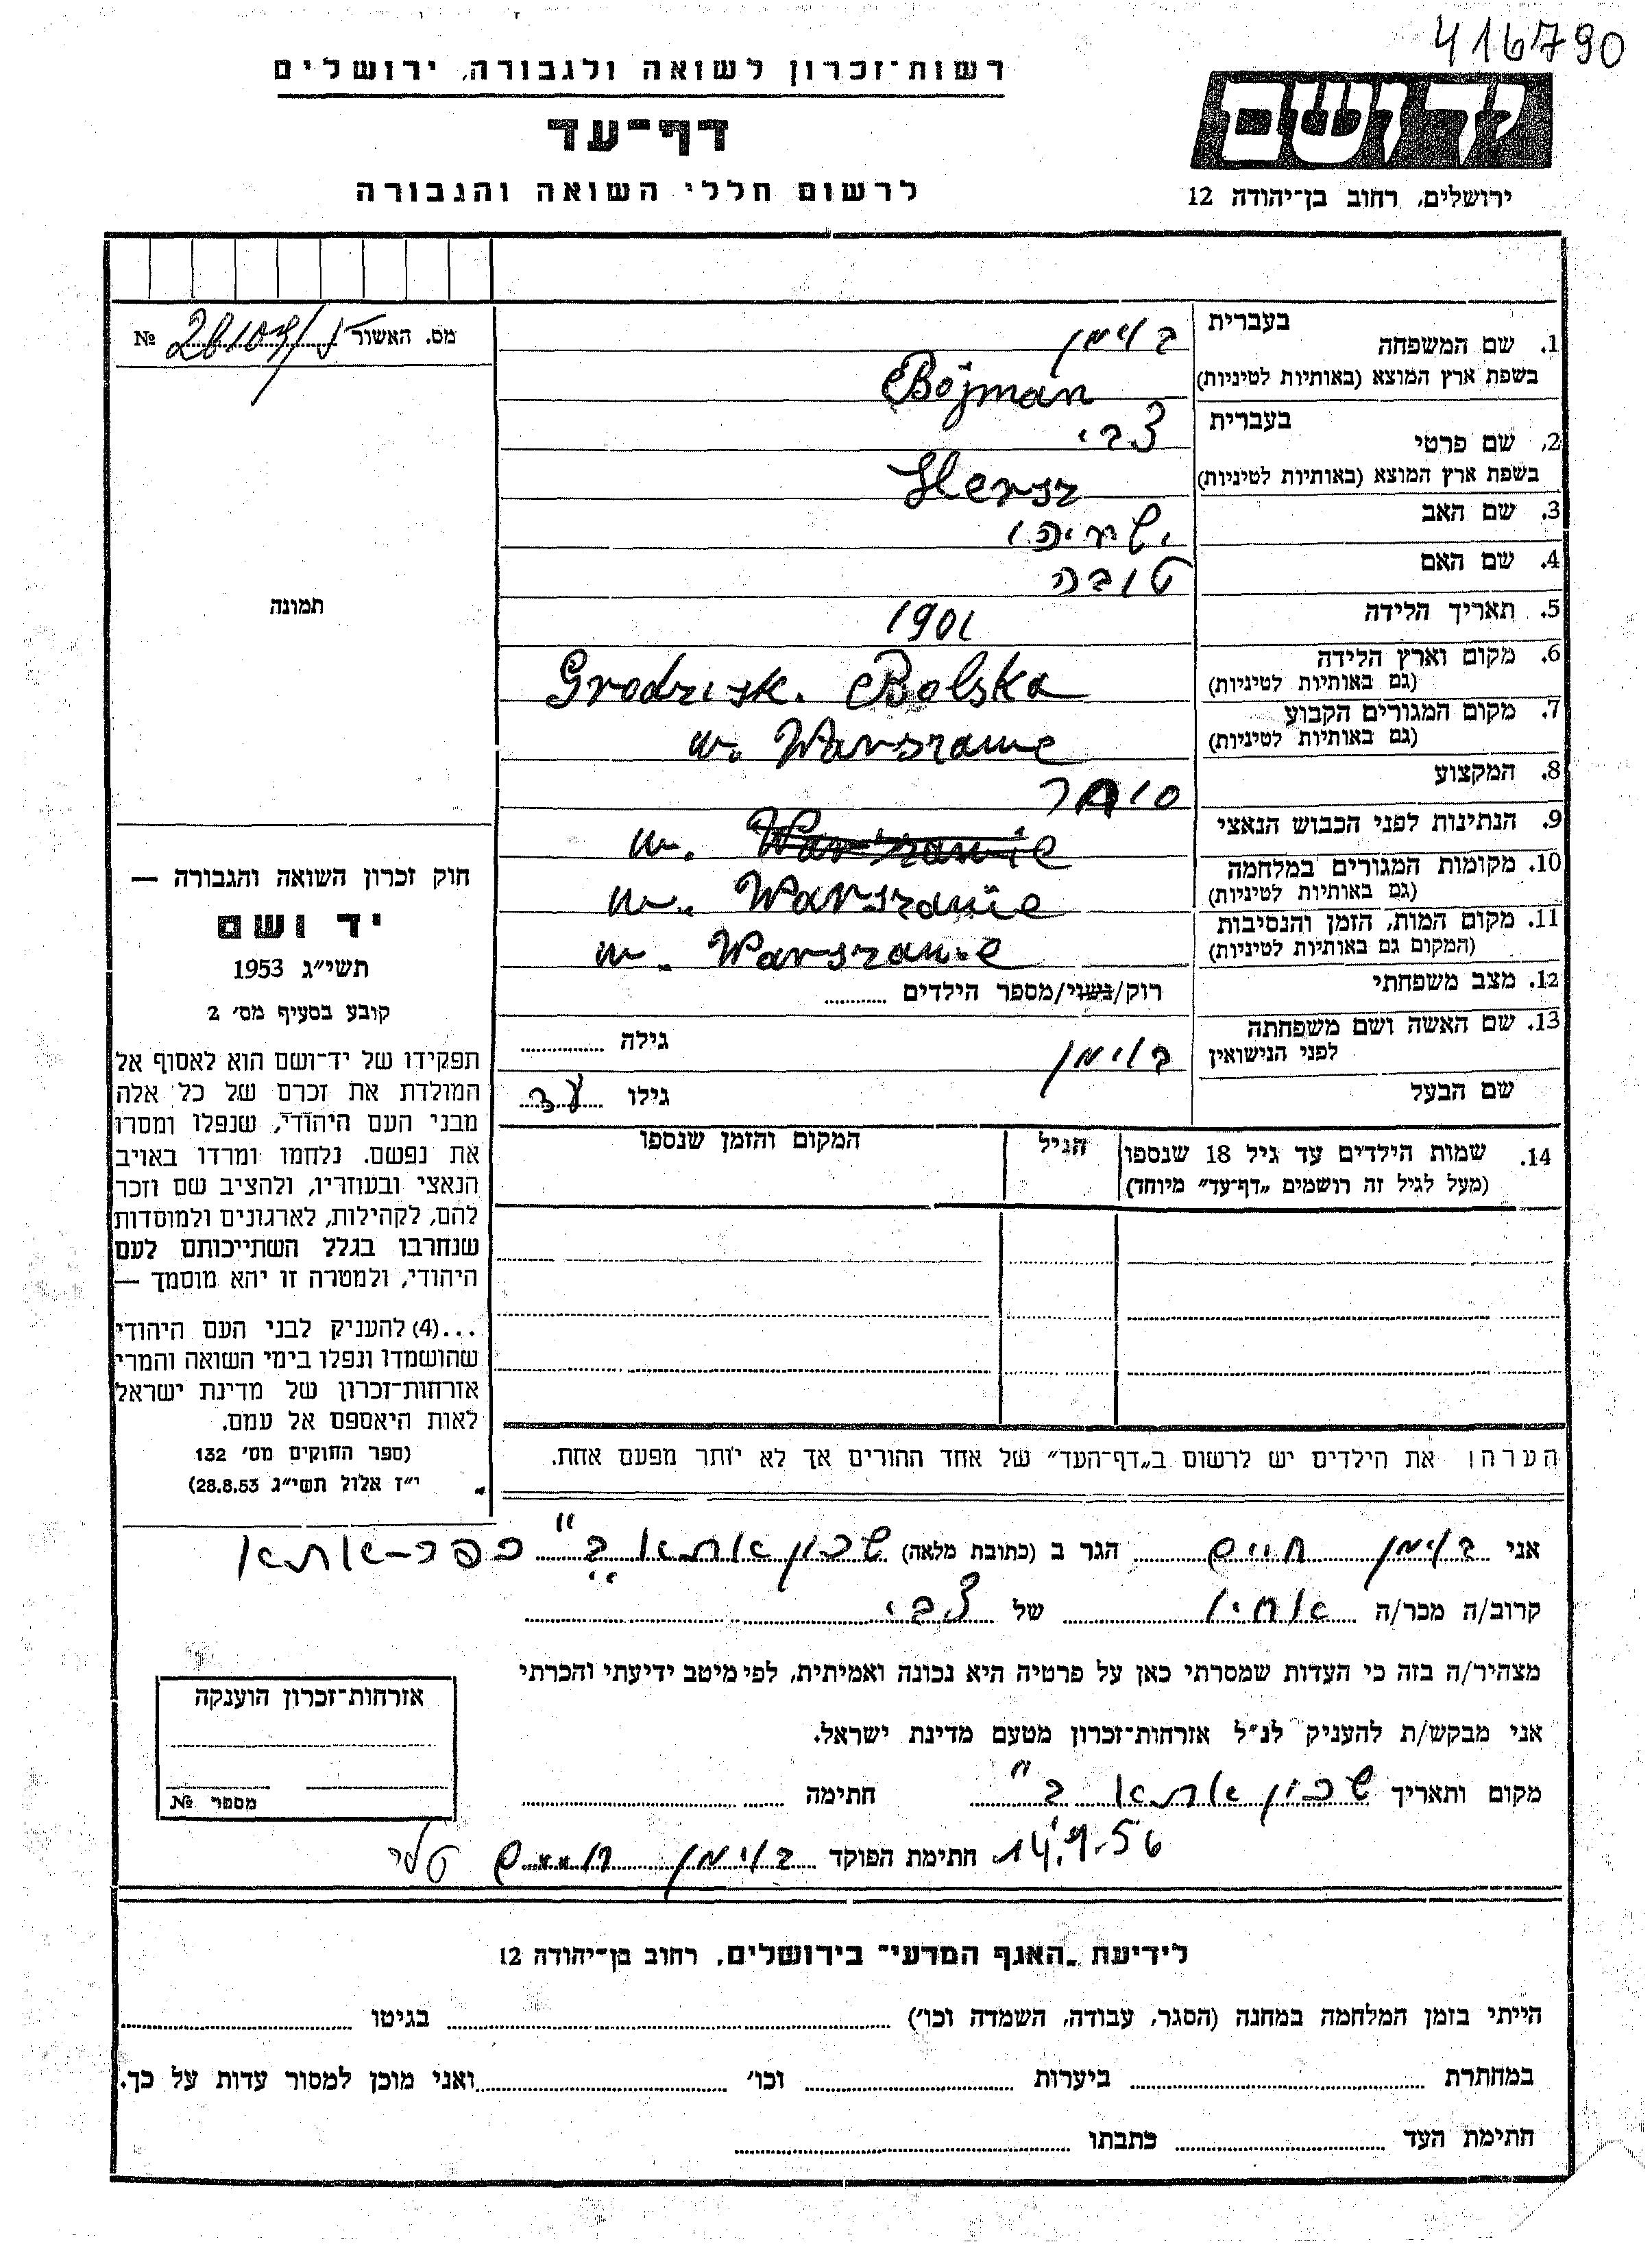 416790
רשות־זכרון לשואה ולגבורה, ירושלים
דף־עד
לרשום חללי השואה והגבורה
יד ושם
ירושלים, רחוב בן־יהודה 12
מס. האשור №
1. שם המשפחה בעברית בוימן
בשפת ארץ המוצא (באותיות לטיניות) Bojman
2. שם פרטי בעברית צבי
בשפת ארץ המוצא (באותיות לטיניות) Hersz
3. שם האב ישעיהו
4. שם האם טובה
5. תאריך הלידה 1901
6. מקום וארץ הלידה (גם באותיות לטיניות) Grodzisk. Bolska
7. מקום המגורים הקבוע (גם באותיות לטיניות) w. Warszawie
8. המקצוע סוחר
9. הנתינות לפני הכבוש הנאצי w. Warszawie
10. מקומות המגורים במלחמה (גם באותיות לטיניות) w. Warszawie
11. מקום המות, הזמן והנסיבות (המקום גם באותיות לטיניות) w. Warszawie
12. מצב משפחתי רוק/נשוי/מספר הילדים
13. שם האשה ושם משפחתה לפני הנישואין בוימן גילה
שם הבעל גילו
14. שמות הילדים עד גיל 18 שנספו (מעל לגיל זה רושמים „דף־עד” מיוחד) הגיל המקום והזמן שנספו
הערה! את הילדים יש לרשום ב„דף־העד” של אחד ההורים אך לא יותר מפעם אחת.
תמונה
חוק זכרון השואה והגבורה —
יד ושם
תשי״ג 1953
קובע בסעיף מס׳ 2
תפקידו של יד־ושם הוא לאסוף אל
המולדת את זכרם של כל אלה
מבני העם היהודי, שנפלו ומסרו
את נפשם. נלחמו ומרדו באויב
הנאצי ובעוזריו, ולהציב שם וזכר
להם, לקהילות, לארגונים ולמוסדות
שנחרבו בגלל השתייכותם לעם
היהודי, ולמטרה זו יהא מוסמך —
...(4) להעניק לבני העם היהודי
שהושמדו ונפלו בימי השואה והמרי
אזרחות־זכרון של מדינת ישראל
לאות היאספם אל עמם.
(ספר החוקים מס׳ 132
י״ז אלול תשי״ג 28.8.53)
אני בוימן חיים הגר ב (כתובת מלאה) שכון אתא ב" כפר-אתא
קרוב/ה מכר/ה אחיו של צבי
מצהיר/ה בזה כי העדות שמסרתי כאן על פרטיה היא נכונה ואמיתית, לפי מיטב ידיעתי והכרתי
אני מבקש/ת להעניק לנ״ל אזרחות־זכרון מטעם מדינת ישראל.
מקום ותאריך שכון אתא ב" חתימה
14.9.56 חתימת הפוקד בוימן חיים
אזרחות־זכרון הוענקה
מספר №
לידיעת „האגף המדעי” בירושלים, רחוב בן־יהודה 12
הייתי בזמן המלחמה במחנה (הסגר, עבודה, השמדה וכו׳) בגיטו
במחתרת ביערות וכו׳ ואני מוכן למסור עדות על כך.
חתימת העד כתבתו